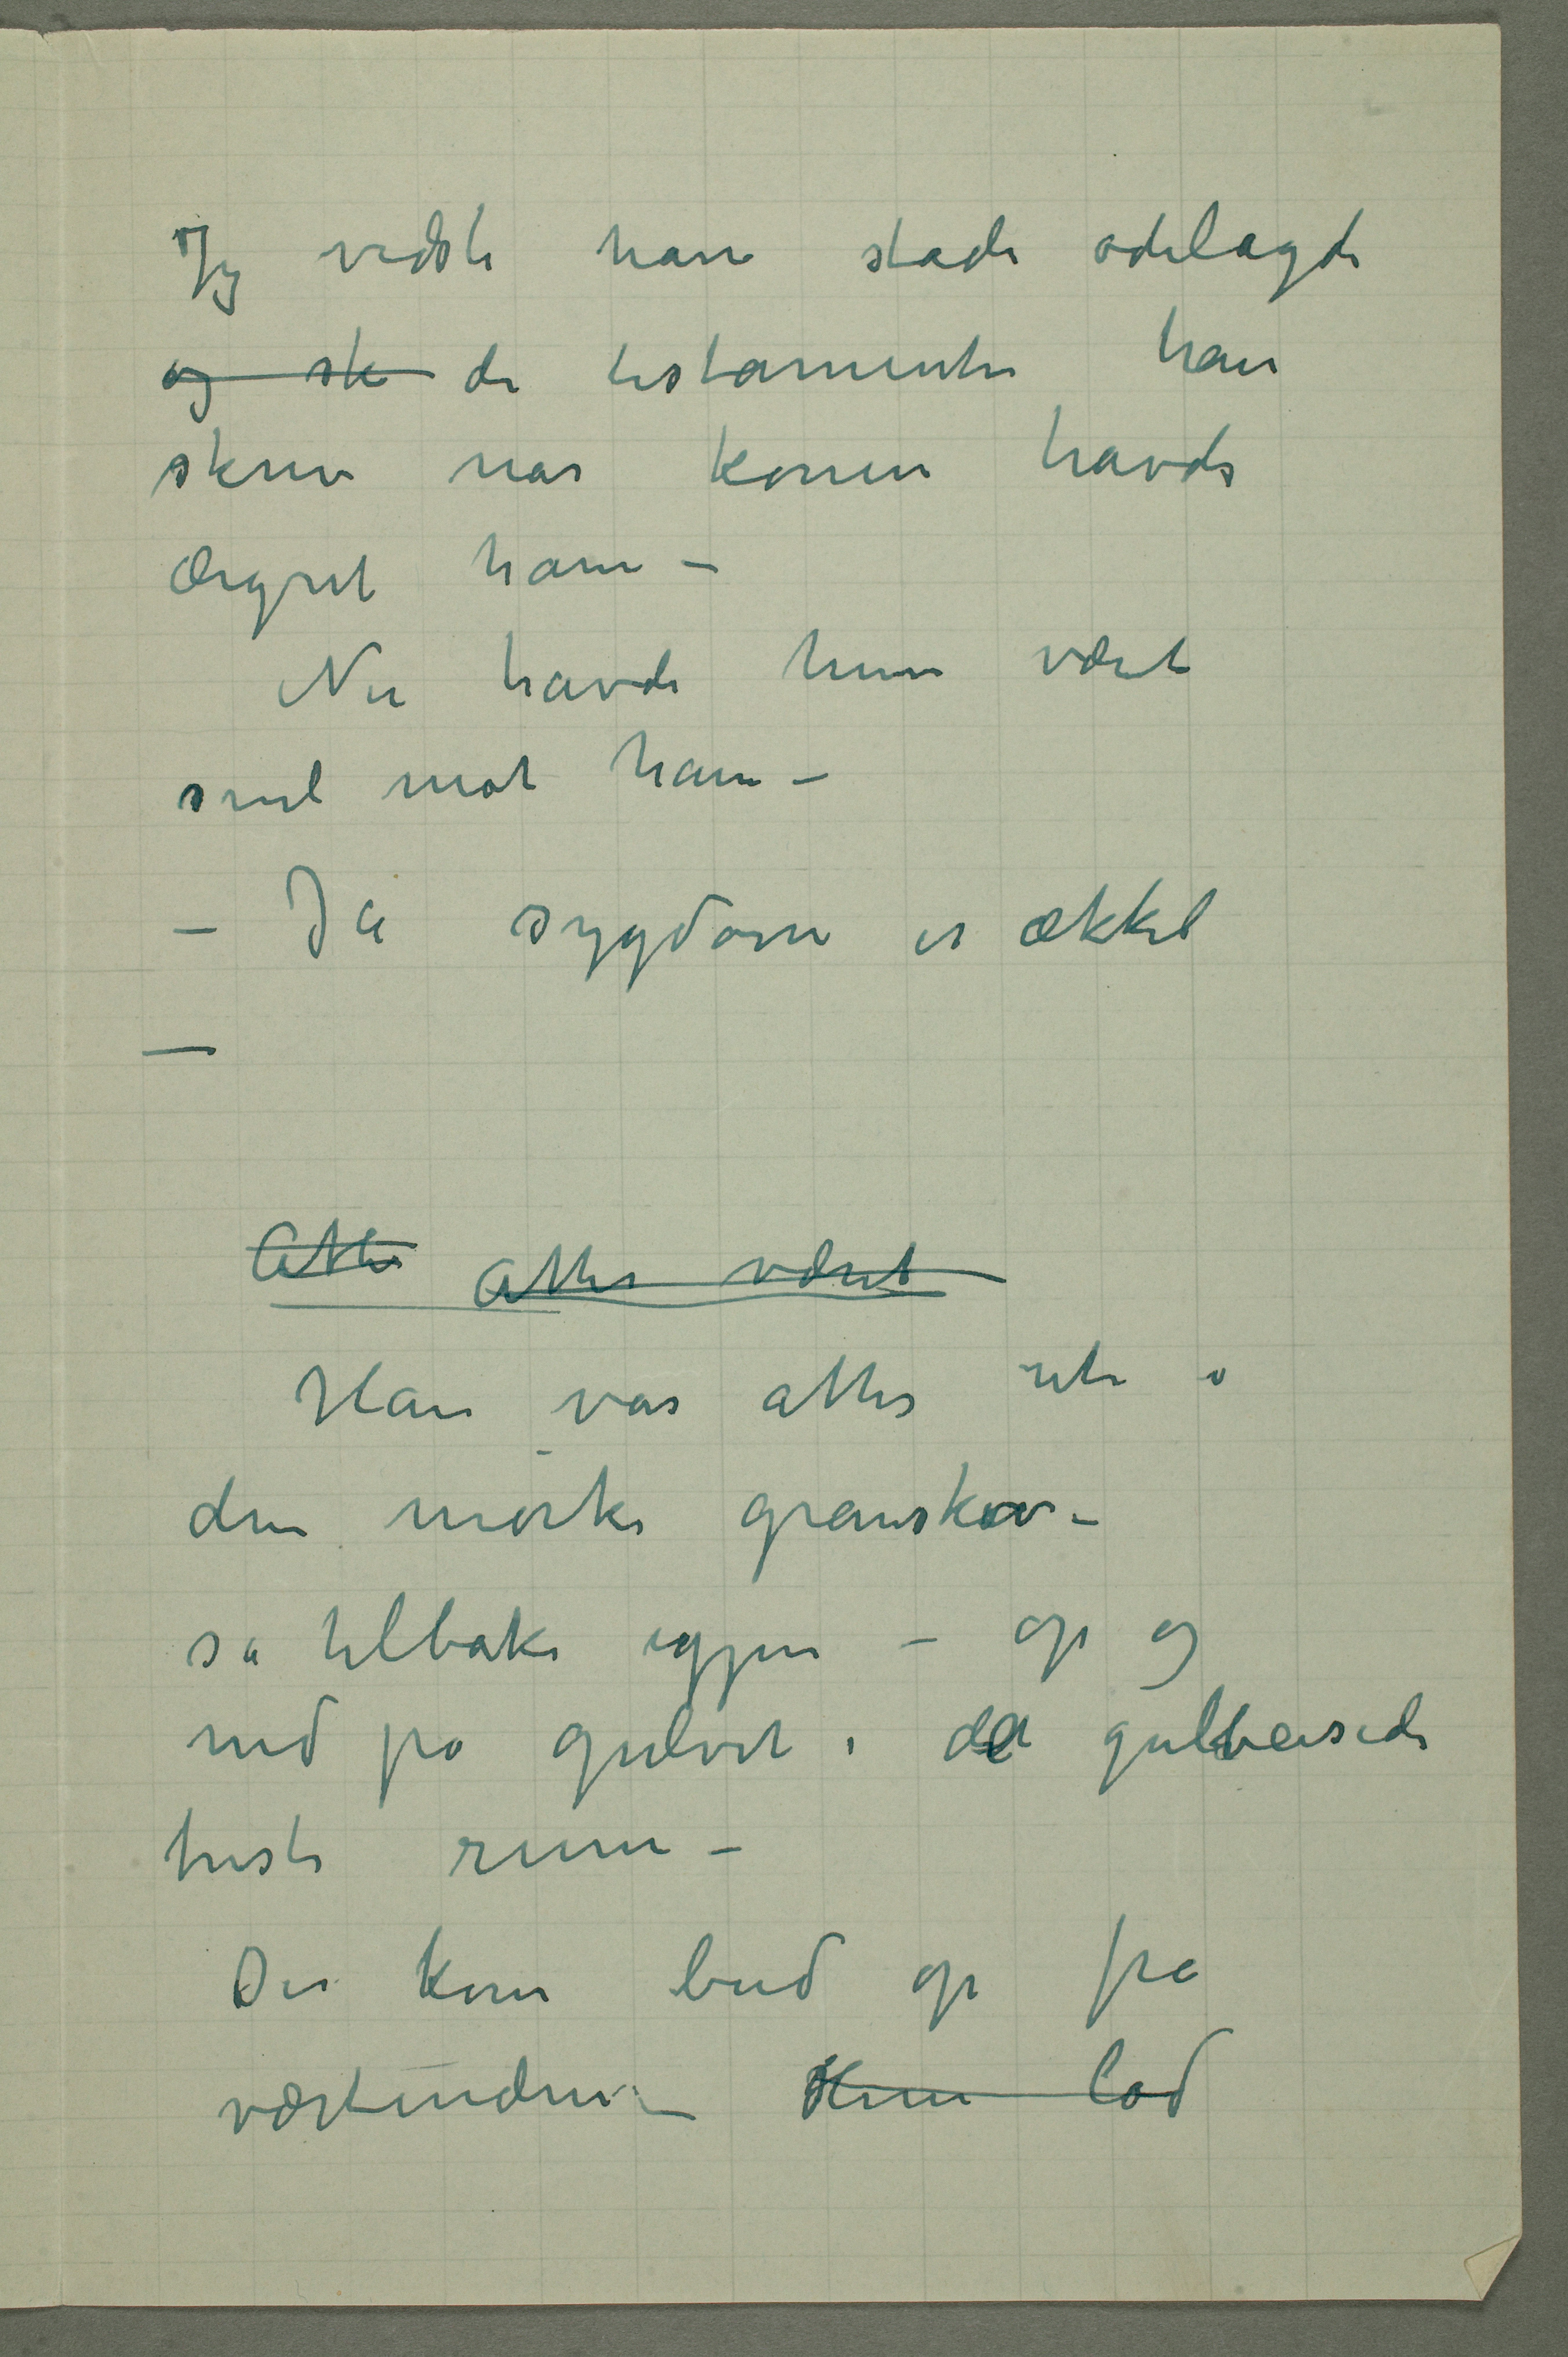 Jeg vidste han stadi ødelagde
og sk de testamenter han
skrev når konen havde
ærgret ham –
Nu havde hun været
snil mot ham –
– Ja sygdom er ækkel
—
Atter atter været
Han var atter ute i
den mørke granskov –
så tilbake igjen – op og
ned på gulvet i det gulbeisede
triste rum –
Der kom bud op fra
værtinden – Hun lod